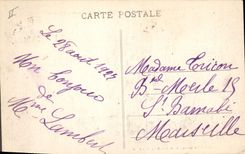 CARTE POSTALE
Le 28 août 1927
Mon bonjour
de
Mme Lambert
Madame Tricon
Bd Merle 15
St Barnabé
Marseille